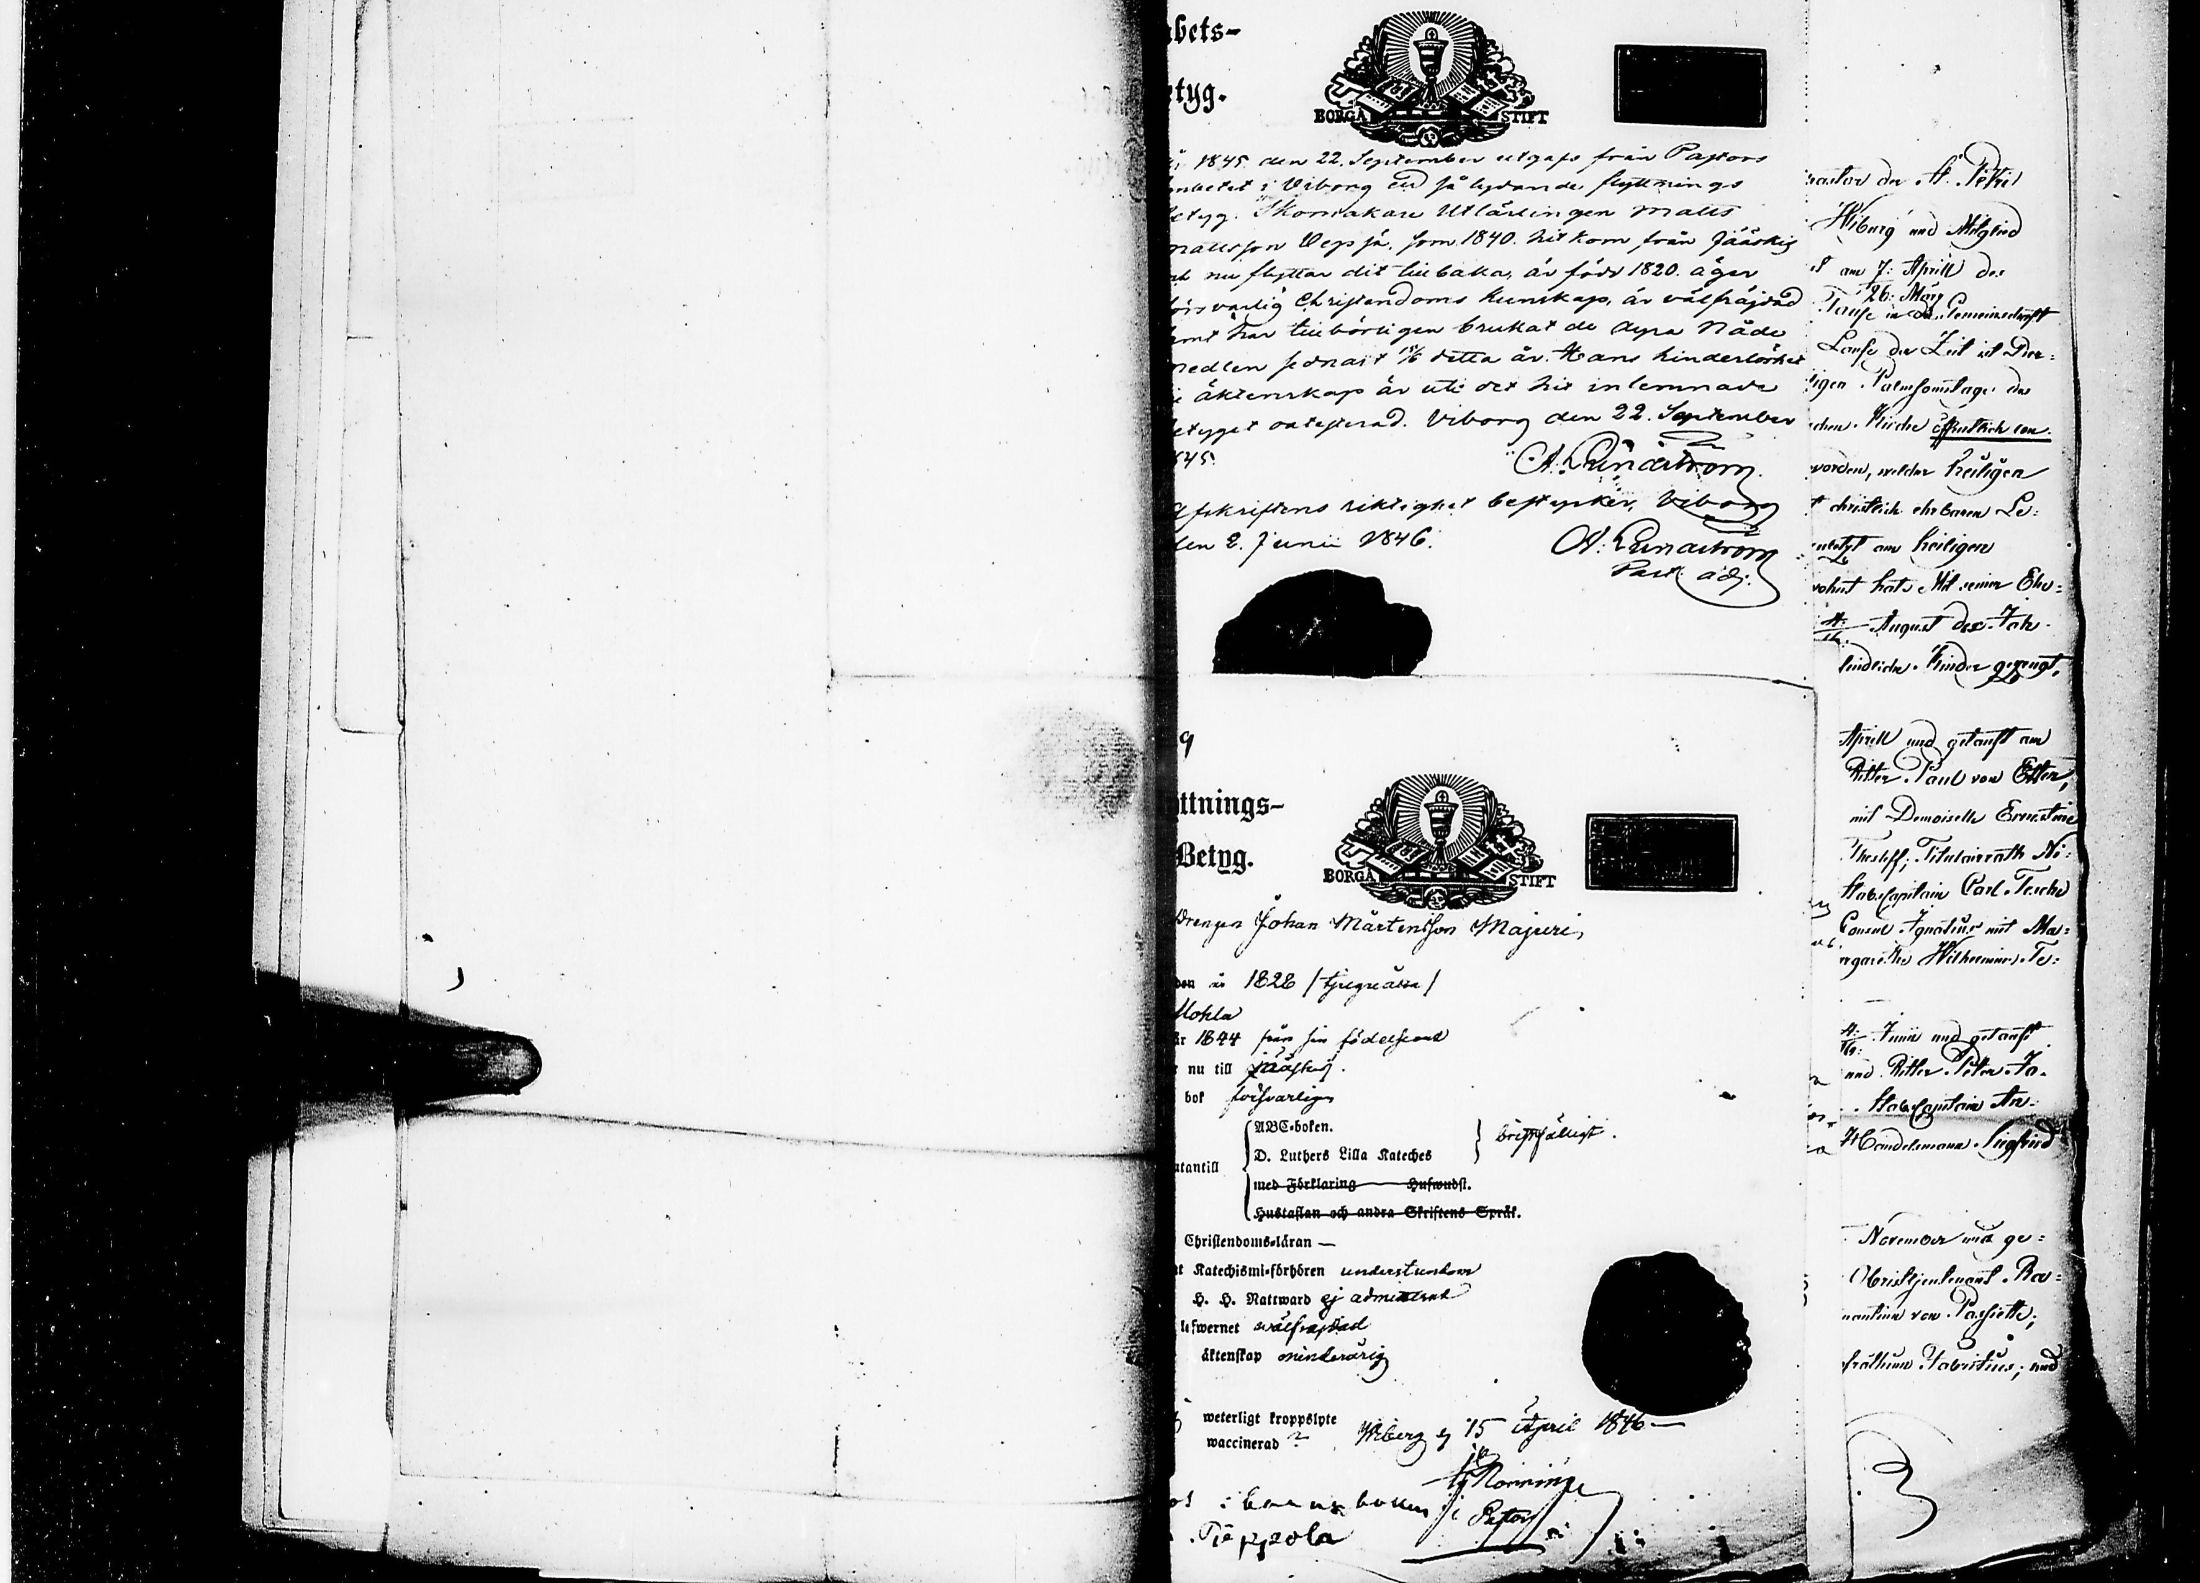 bets-
tyg.
BORGÅ STIFT
1845 den 22. September utgafs från Pastors
embetet i Viborg ett så lydande flyttnings
betyg. Skomakare Utlärlingen Matts
Mattsson Vepsä, som 1840. hit kom från Jääskis
och nu flyttar dit tillbaka, är född 1820. äger
försvarlig Christendoms kunskap, är välfräjdad
samt har tillbörligen brukat de dyra Nåde
medlen sednast detta år. Hans hinderlöshet
i äktenskap är uti det hit inlemnade
betyget Viborg den 22. September
845.
A. Lundström
Afskriftens riktighet bestyrker, Viborg
den 2. Junii 1846.
A. Lundström
Past. adj.
9
ttnings-
Betyg.
BORGÅ STIFT
Drengen Johan Mårtensson Majuri,
den år 1828 / tjuguåtta /
Mohla
år 1844 från sin födelseort
nu till Jääskis.
bok försvarligt
ABC-boken.
D. Luthers Lilla Kateches
bristfälligt.
utantill
med Förklaring Hufwudst.
Hustaflan och andra Skriftens Språk.
Christendoms-läran —
t Katechismi-förhören understundom
H. H. Nattward ej admitterad
lefwernet wälfrejdad
äktenskap minderårig
weterligt kroppslyte
waccinerad ?
Wiborg d. 15 April 1846 —
Pastor
Pastor der St. Petri
Wiburg und Mitglied
am 7. Aprill des
26. März
Taufe in die Gemeinschaft
Laufe der Zeit ist Der-
ligen Palmsonntage des
schen Kirche öffentlich con-
worden, welcher heiligen
t christlich ehrbaren Le-
zuletzt am heiligen
wohnt hat. Mit seiner Ehe-
August des Jah-
Kinder gezeugt,
Aprill und getauft am
Ritter Paul von Etter,
mit Demoiselle Ernestine
Thesleff, Titulairrath Ni-
Stabscapitain Carl Tesche
Consul Ignatius mit Ma-
rgarethe Wilhelmine Te-
Junii und getauft
und Ritter Peter Ja-
Stabscapitain An-
Handelsmann Siegfried
November und ge-
von
und